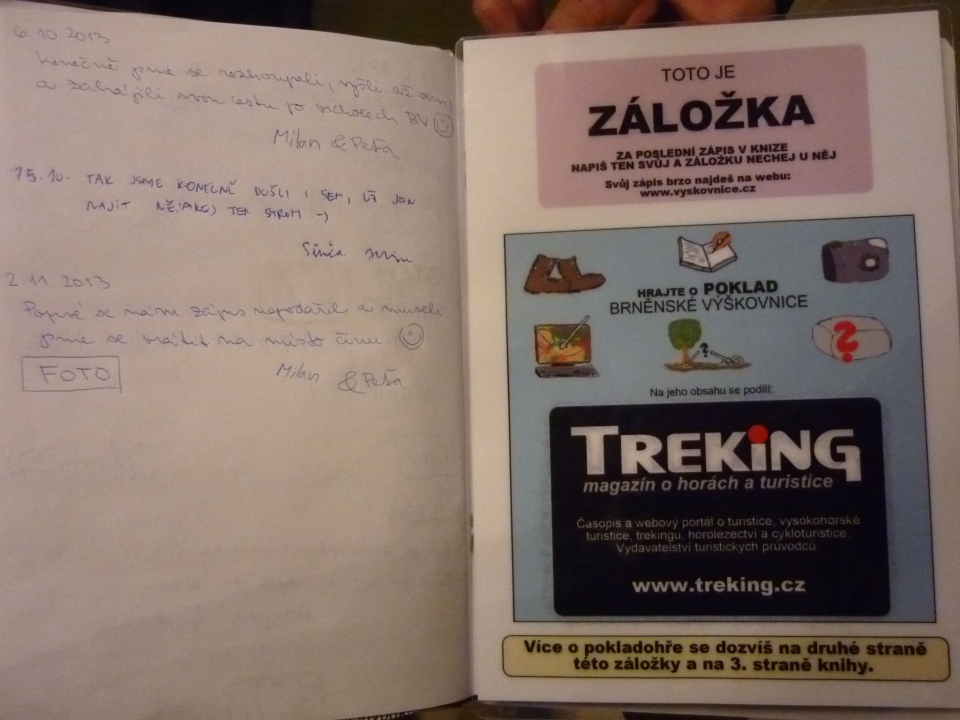 6.10.2013
Konečně jsme se rozhoupali, vyšli až sem
a zahájili svou cestu po vrcholech BV
Milan & Peťa
15.10. TAK JSME KONEČNĚ DOŠLI I SEM, UŽ JEN
NAJÍT NĚJAKEJ TEN STROM :-)
2.11.2013
Poprvé se nám zápis nepodařil a museli
jsme se vrátit na místo činu
FOTO
Milan & Peťa
TOTO JE
ZÁLOŽKA
ZA POSLEDNÍ ZÁPIS V KNIZE
NAPIŠ TEN SVŮJ A ZÁLOŽKU NECHEJ U NĚJ
Svůj zápis brzo najdeš na webu:
www.vyskovnice.cz
HRAJTE O POKLAD
BRNĚNSKÉ VÝŠKOVNICE
?
?
Na jeho obsahu se podílí:
TREKiNG
magazín o horách a turistice
Časopis a webový portál o turistice, vysokohorské
turistice, trekingu, horolezectví a cykloturistice.
Vydavatelství turistických průvodců
www.treking.cz
Více o pokladohře se dozvíš na druhé straně
této záložky a na 3. straně knihy.